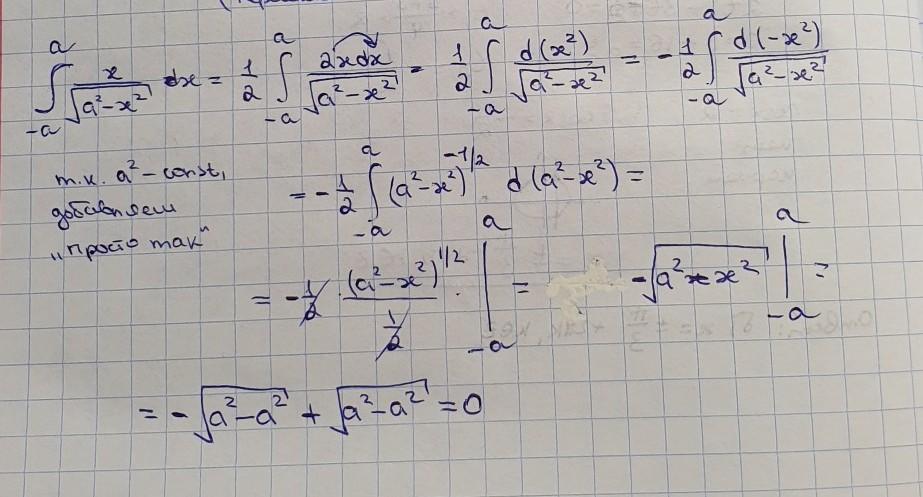 ∫_{-a}^{a} x/√(a²-x²) dx = 1/2 ∫_{-a}^{a} 2xdx/√(a²-x²) = 1/2 ∫_{-a}^{a} d(x²)/√(a²-x²) = -1/2 ∫_{-a}^{a} d(-x²)/√(a²-x²)
т.к. a² - const,
добавляем
„просто так"
= -1/2 ∫_{-a}^{a} (a²-x²)^{-1/2} · d(a²-x²) =
= -1/2 · (a²-x²)^{1/2}/(1/2) · |_{-a}^{a} = -√(a²-x²) |_{-a}^{a} =
= -√(a²-a²) + √(a²-a²) = 0